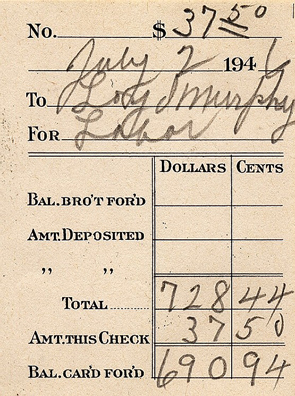 No. $ 37 50
July 2 1946
To Loy S Murphy
For Labor
DOLLARS CENTS
BAL. BRO'T FOR'D
AMT. DEPOSITED
" "
TOTAL 728 44
AMT. THIS CHECK 37 50
BAL. CAR'D FOR'D 690 94